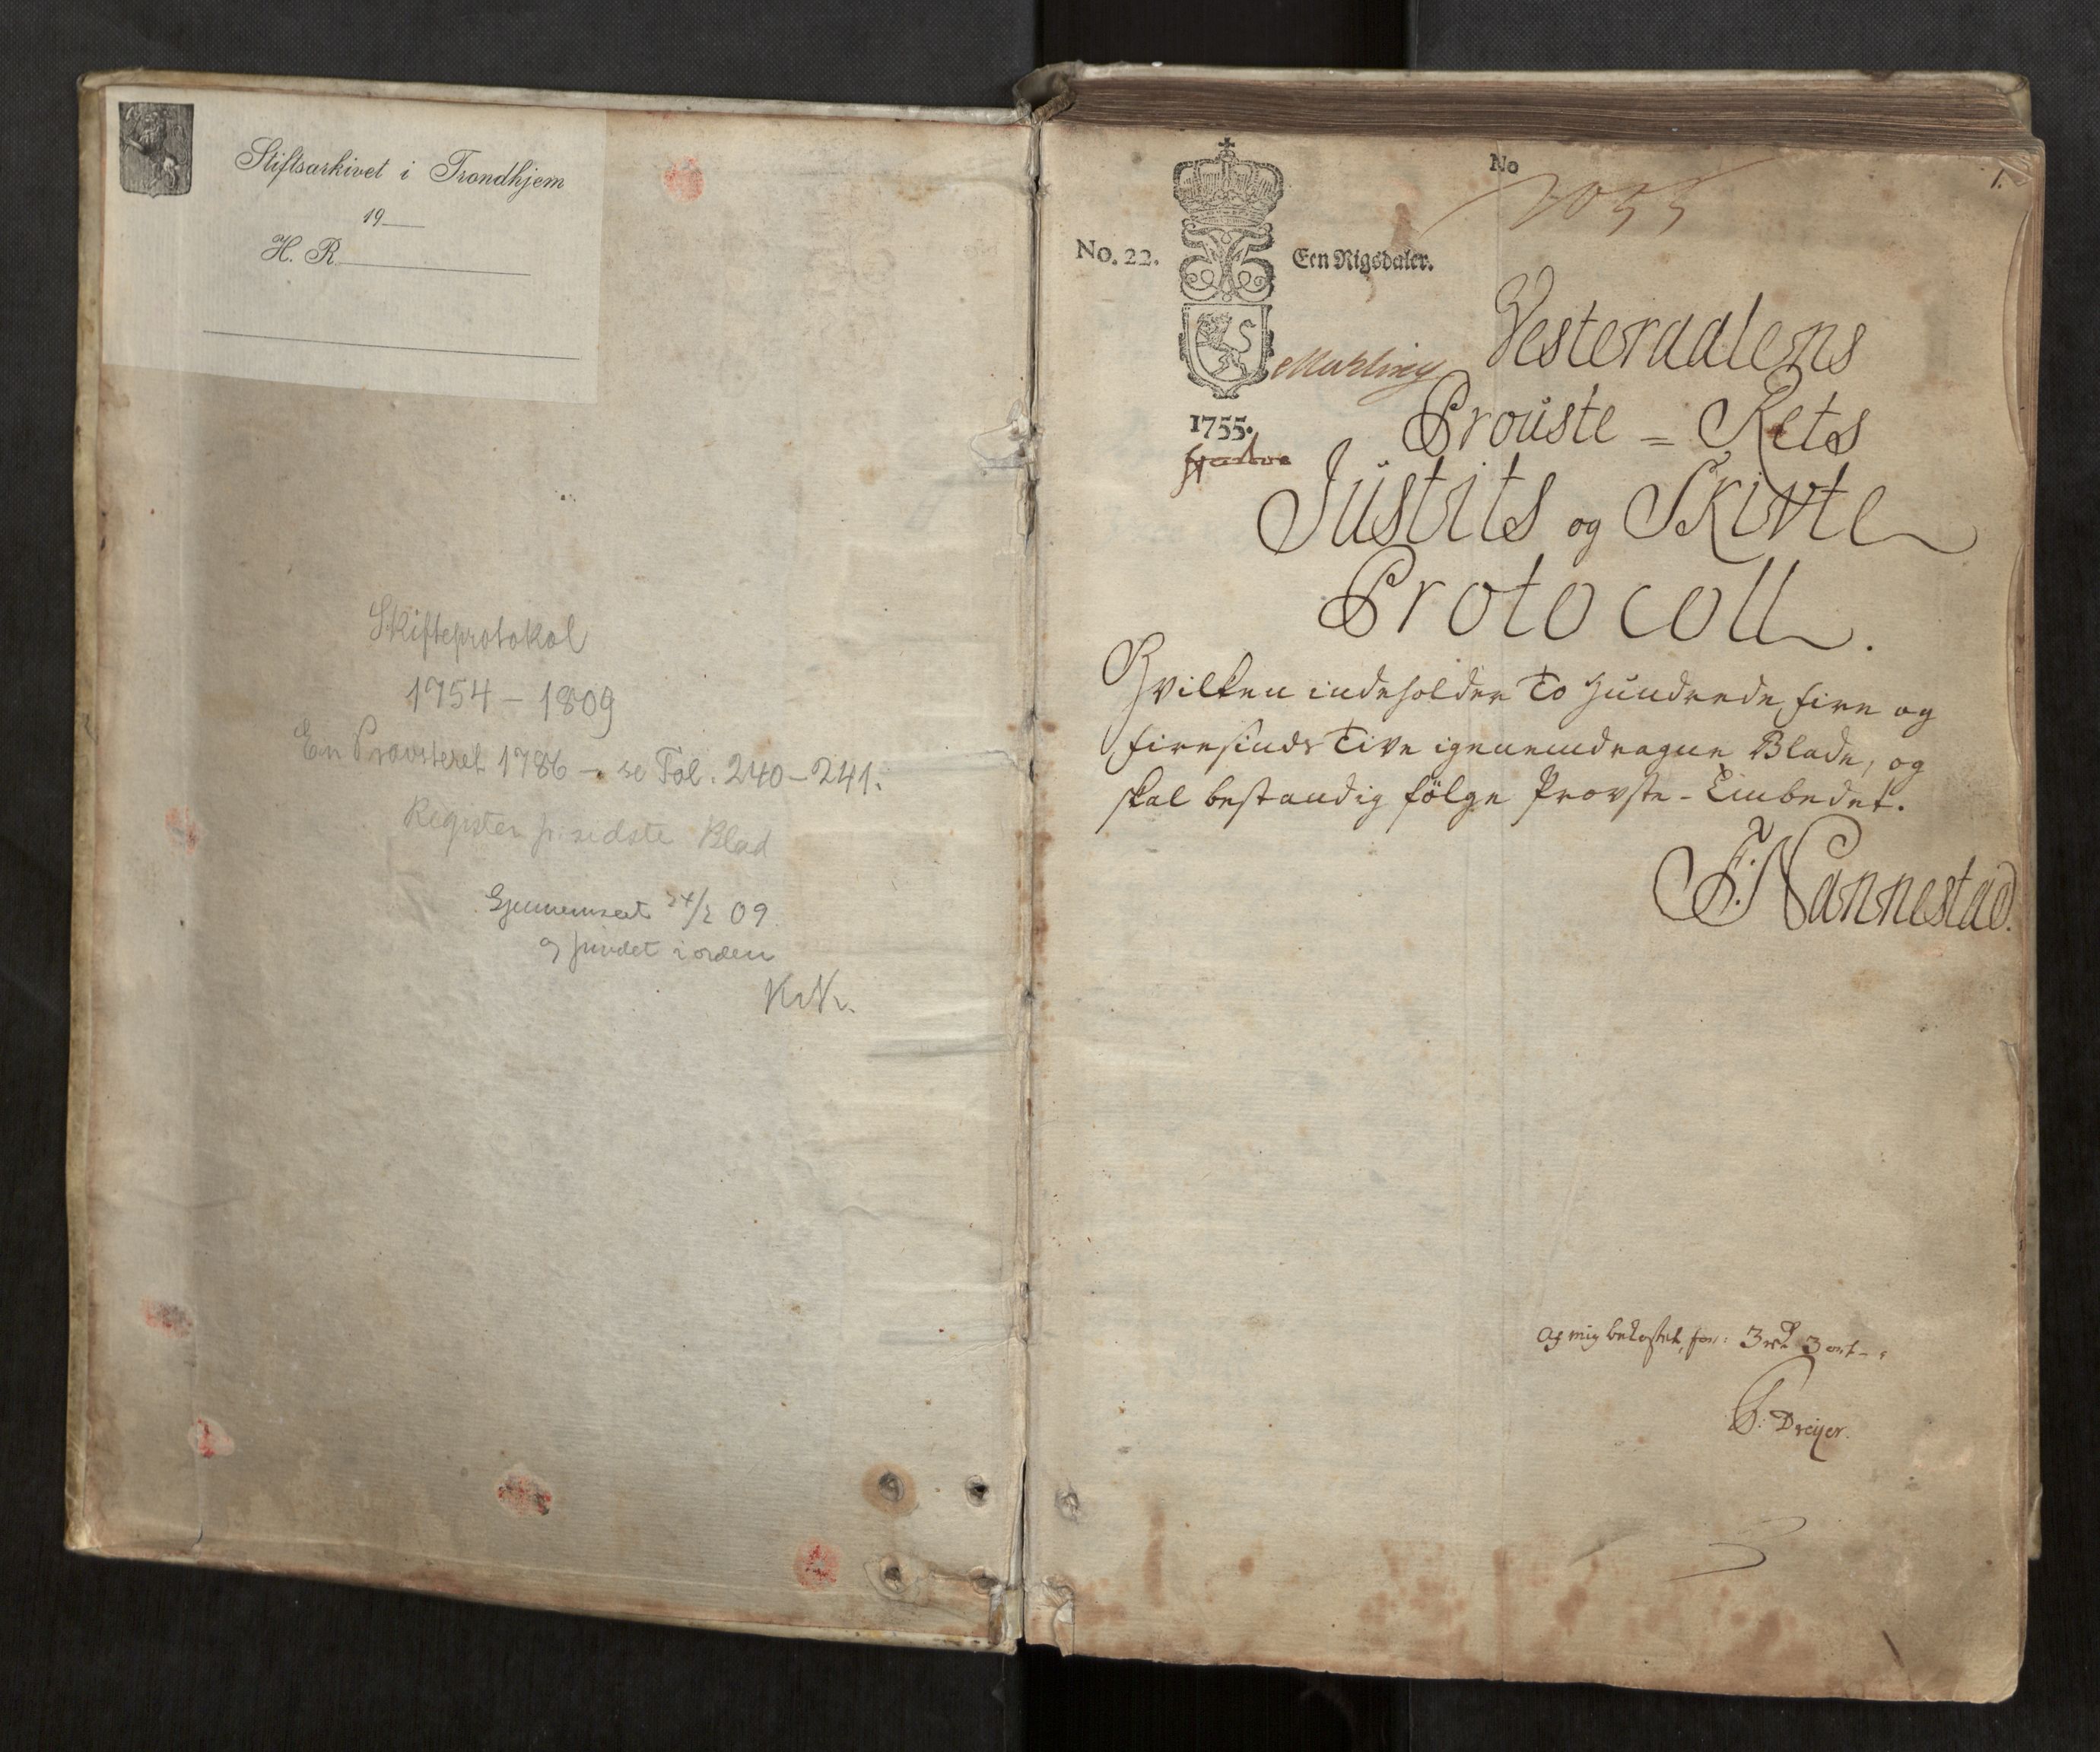 Stiftsarkivet i Trondhjem
19
H. R.
Skifteprotokol
1754 – 1809
En Provsteret 1786 – se Fol. 240–241.
Register på sidste Blad
Gjennemseet 24/2 09.
og fundet i orden
Kr. N.
1.
No
2055
No. 22.
Een Rigsdaler.
1755.
Vesteraalens
Prouste = Rets
Justits og Skivte
Protocoll.
Hvilken indeholder To Hundrede, fire og
firesinds Tive igienemdragne Blade, og
skal bestandig følge Provste-Embedet.
F. Nannestad.
Af mig bekostet, for: 3 rd 3 ort
Dreijer.